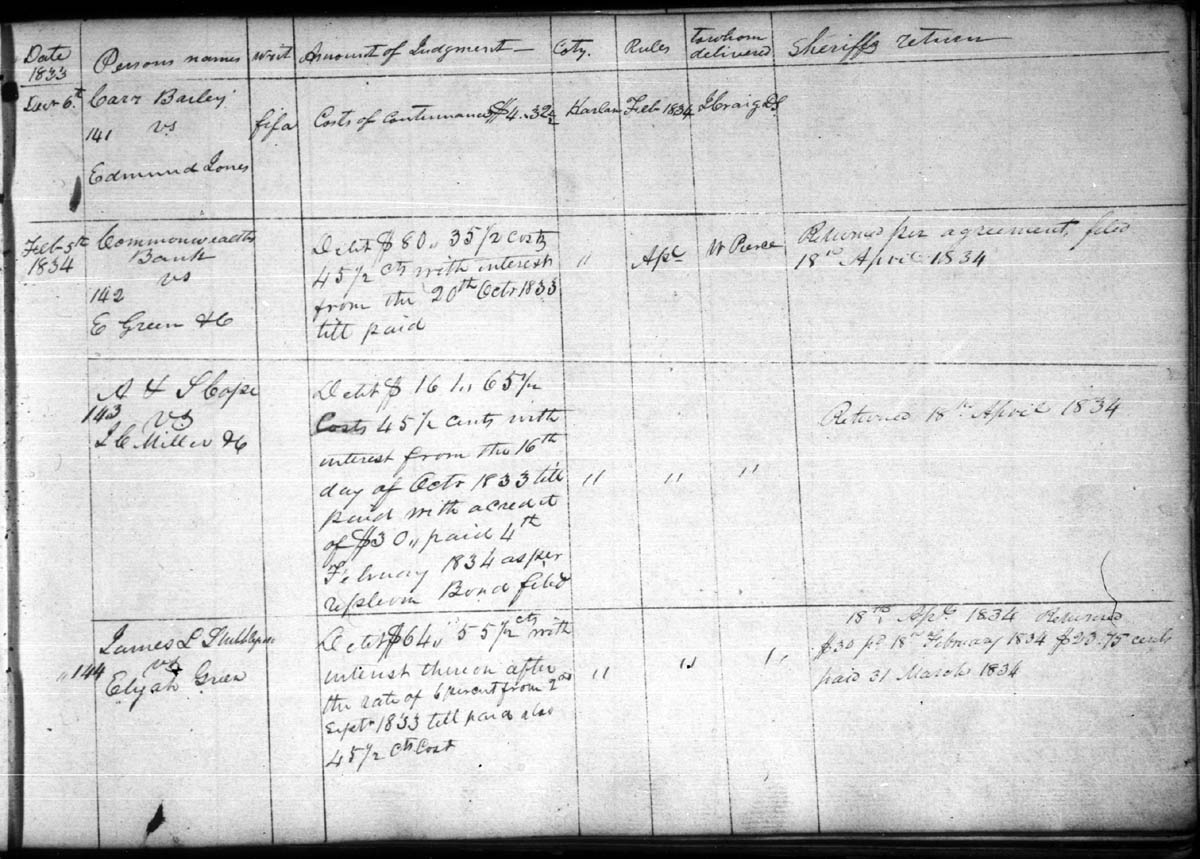 Date 1833
Persons names
writ
Amount of Judgment —
Coty.
Rules
to whom delivered
Sheriffs return
Decr 6th
Carr Bailey
141 vs
Edmund Jones
fifa
Costs of continuance $4.32½
Harlan
Feb 1834
J Craig DS
Feb 5th
1834
Commonwealths
Bank
vs
142
E Green &C
Debt $80,, 35 1/2 costs
45 1/2 cts with interest
from the 20th Octr 1833
till paid
"
Apl
W Pierce
Returned per agreement, filed
18th April 1834
A & S Cope
143 vs
J C Miller &C
Debt $ 161,, 65 1/2
Costs 45 1/2 cents with
interest from the 16th
day of Octr 1833 till
paid with a credit
of $30,, paid 4th
February 1834 as per
replevin Bond filed
"
"
"
Returned 18th April 1834
James L
144 vs
Elijah Green
Debt $64,, 55 1/2 cts with
interest thereon after
the rate of 6 percent from 2nd
Septr 1833 till paid also
45 1/2 cts Cost
"
"
"
18th Apl 1834 Returned
$30 pd 18th February 1834 $20.75 cents
paid 31 March 1834